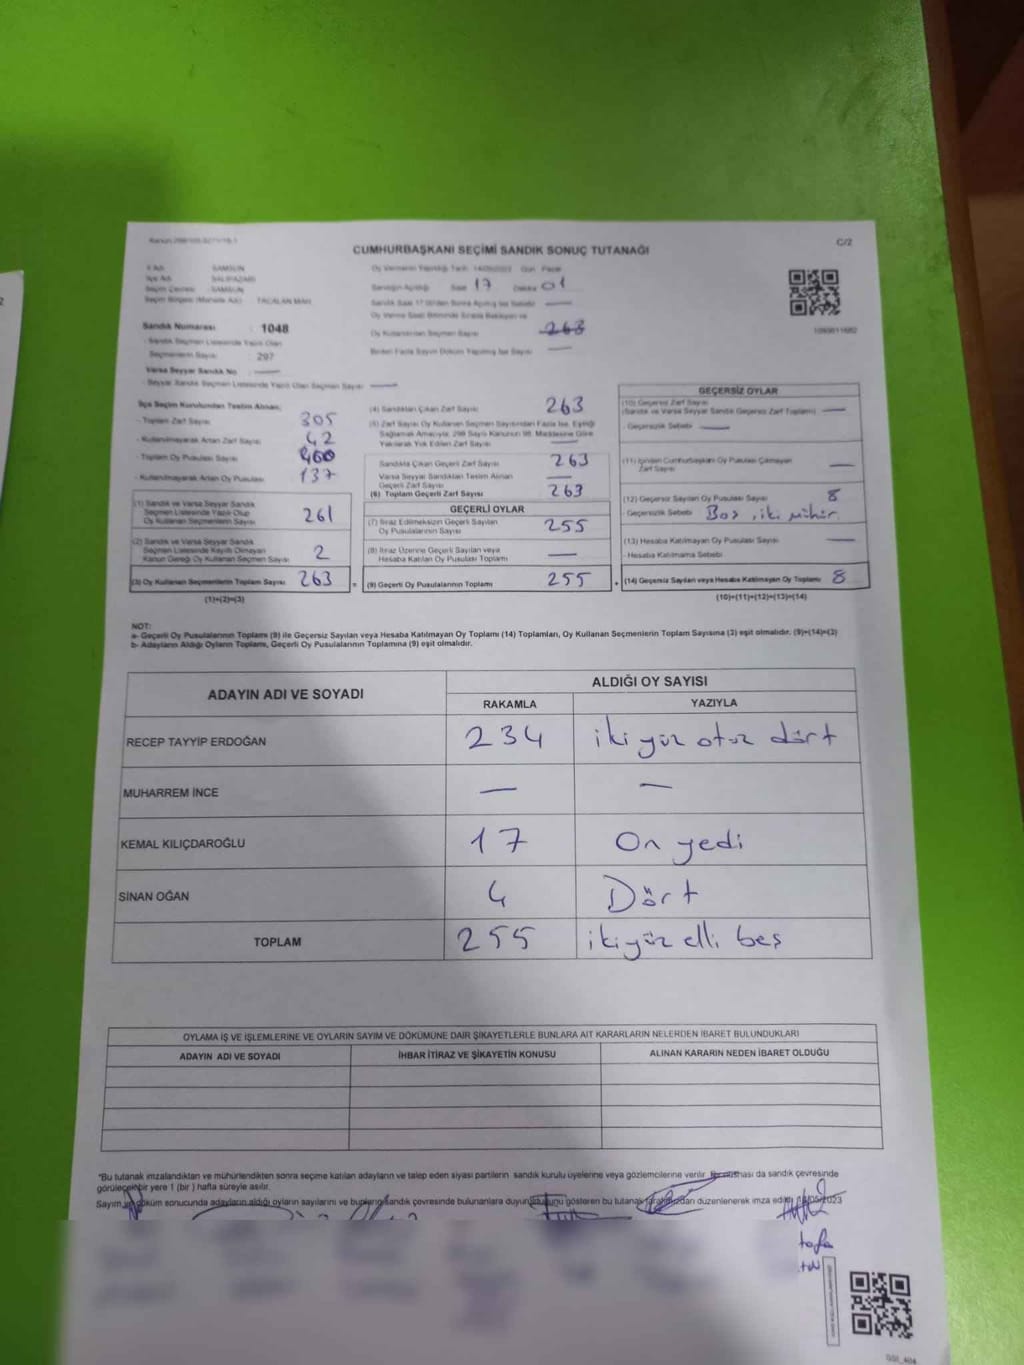 C/2
CUMHURBAŞKANI SEÇİMİ SANDIK SONUÇ TUTANAĞI
İl Adı SAMSUN
İlçe Adı SALIPAZARI
Seçim Çevresi SAMSUN
Oy Vermenin Yapıldığı Tarih 14/05/2023 Gün Pazar
Saat 17 Dakika 01
Sandık Numarası : 1048
Seçmenlerin Sayısı 297
Oy Kullanan Seçmen Sayısı 263
Varsa Seyyar Sandık No —
- Seyyar Sandık Seçmen Listesinde Yazılı Olan Seçmen Sayısı —
İlçe Seçim Kurulundan Teslim Alınan;
- Toplam Zarf Sayısı 305
- Kullanılmayarak Artan Zarf Sayısı 42
- Toplam Oy Pusulası Sayısı 400
- Kullanılmayarak Artan Oy Pusulası 137
(1) Sandık ve Varsa Seyyar Sandık Seçmen Listesinde Yazılı Olup Oy Kullanan Seçmenlerin Sayısı 261
(2) Sandık ve Varsa Seyyar Sandık Seçmen Listesinde Kayıtlı Olmayan Kanun Gereği Oy Kullanan Seçmen Sayısı 2
(3) Oy Kullanan Seçmenlerin Toplam Sayısı 263
(1)+(2)=(3)
(4) Sandıktan Çıkan Zarf Sayısı 263
(5) Zarf Sayısı Oy Kullanan Seçmen Sayısından Fazla İse, Eşitliği Sağlamak Amacıyla, 298 Sayılı Kanunun 98. Maddesine Göre Yakılarak Yok Edilen Zarf Sayısı —
Sandıkta Çıkan Geçerli Zarf Sayısı 263
Varsa Seyyar Sandıktan Teslim Alınan Geçerli Zarf Sayısı —
(6) Toplam Geçerli Zarf Sayısı 263
GEÇERLİ OYLAR
(7) İtiraz Edilmeksizin Geçerli Sayılan Oy Pusulalarının Sayısı 255
(8) İtiraz Üzerine Geçerli Sayılan veya Hesaba Katılan Oy Pusulası Toplamı —
(9) Geçerli Oy Pusulalarının Toplamı 255
GEÇERSİZ OYLAR
(10) Geçersiz Zarf Sayısı
(Sandık ve Varsa Seyyar Sandık Geçersiz Zarf Toplamı) —
- Geçersizlik Sebebi —
(11) İçinden Cumhurbaşkanı Oy Pusulası Çıkmayan Zarf Sayısı —
(12) Geçersiz Sayılan Oy Pusulası Sayısı 8
- Geçersizlik Sebebi Boş, iki mühür.
(13) Hesaba Katılmayan Oy Pusulası Sayısı —
- Hesaba Katılmama Sebebi
(14) Geçersiz Sayılan veya Hesaba Katılmayan Oy Toplamı 8
(10)+(11)+(12)+(13)=(14)
NOT:
a- Geçerli Oy Pusulalarının Toplamı (9) ile Geçersiz Sayılan veya Hesaba Katılmayan Oy Toplamı (14) Toplamları, Oy Kullanan Seçmenlerin Toplam Sayısına (3) eşit olmalıdır. (9)+(14)=(3)
b- Adayların Aldığı Oyların Toplamı, Geçerli Oy Pusulalarının Toplamına (9) eşit olmalıdır.
ADAYIN ADI VE SOYADI
ALDIĞI OY SAYISI
RAKAMLA YAZIYLA
RECEP TAYYİP ERDOĞAN 234 iki yüz otuz dört
MUHARREM İNCE — —
KEMAL KILIÇDAROĞLU 17 On yedi
SİNAN OĞAN 4 Dört
TOPLAM 255 iki yüz elli beş
OYLAMA İŞ VE İŞLEMLERİNE VE OYLARIN SAYIM VE DÖKÜMÜNE DAİR ŞİKAYETLERLE BUNLARA AİT KARARLARIN NELERDEN İBARET BULUNDUKLARI
ADAYIN ADI VE SOYADI İHBAR İTİRAZ VE ŞİKAYETİN KONUSU ALINAN KARARIN NEDEN İBARET OLDUĞU
*Bu tutanak imzalandıktan ve mühürlendikten sonra seçime katılan adayların ve talep eden siyasi partilerin sandık kurulu üyelerine veya gözlemcilerine verilir. da sandık çevresinde
görülecek bir yere 1 (bir ) hafta süreyle asılır.